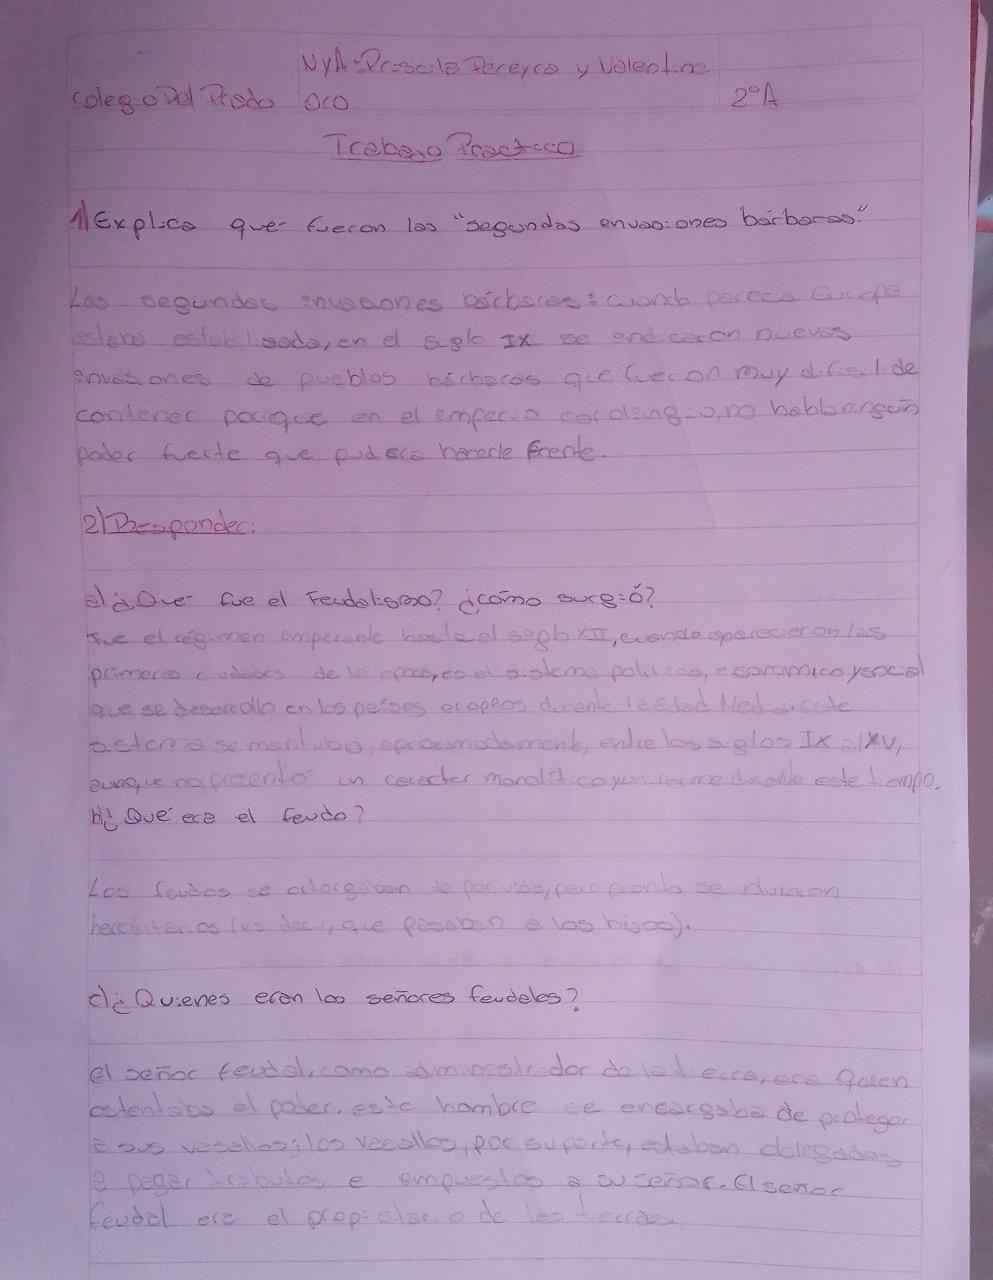 NyA: Priscila Pereyra y Valentina
Colegio Del Prado oro 2°A
Trabajo Practico
1) Explica que fueron las "segundas envasiones bárbaras."
Las segundas invasiones bárbaras: cuando parecia Europa
estaba estabilisada, en el siglo IX se endicaron nuevas
envasiones de pueblos bárbaros que fueron muy dificil de
contener porque en el emperio carolingio, no habia ningún
poder fuerte que pudiera hacerle frente.
2) Responder:
a) ¿Que fue el Feudalismo? ¿cómo surgió?
fue el régimen imperante hasta el siglo XII, cuando aparecieron las
primeras ciudades de la epoca, es el sistema politico, economico y social
que se desarrollo en los países eropeos durante la edad Media, este
sistema se mantubo, aproximadamente, entre los siglos IX al XV,
aunque no presentó un caracter monolítico y uniforme durante este tiempo.
b) ¿Qué era el feudo?
Los feudos se otorgaban de por vida, pero pronto se hicieron
hereditarios (es decir, que pasaban a los hijos).
c) ¿Quienes eran los señores feudales?
el señor feudal, como administrador de la tierra, era quien
ostentaba el poder. este hombre se encargaba de proteger
a sus vasallos; los vasallos, por su parte, estaban obligados
a pagar tributos e empuestos a su señor. El señor
feudal era el propietario de las tierras.